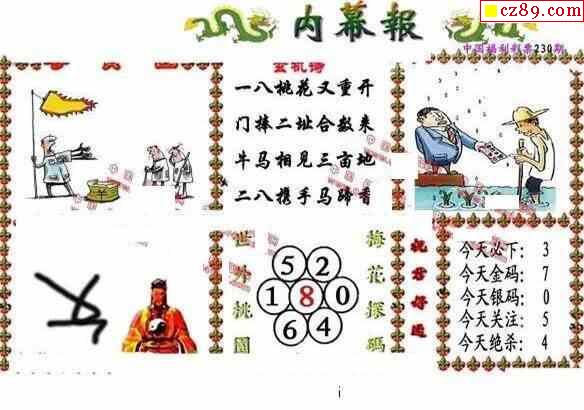 cz89.com
内幕報
中国福利彩票230期
玄机诗
一八桃花又重开
门捧二址合数来
牛马相见三亩地
二八携手马蹄香
世外桃園
5 2
1 8 0
6 4
梅花探碼
祝君好运
今天必下: 3
今天金码: 7
今天银码: 0
今天关注: 5
今天绝杀: 4
i